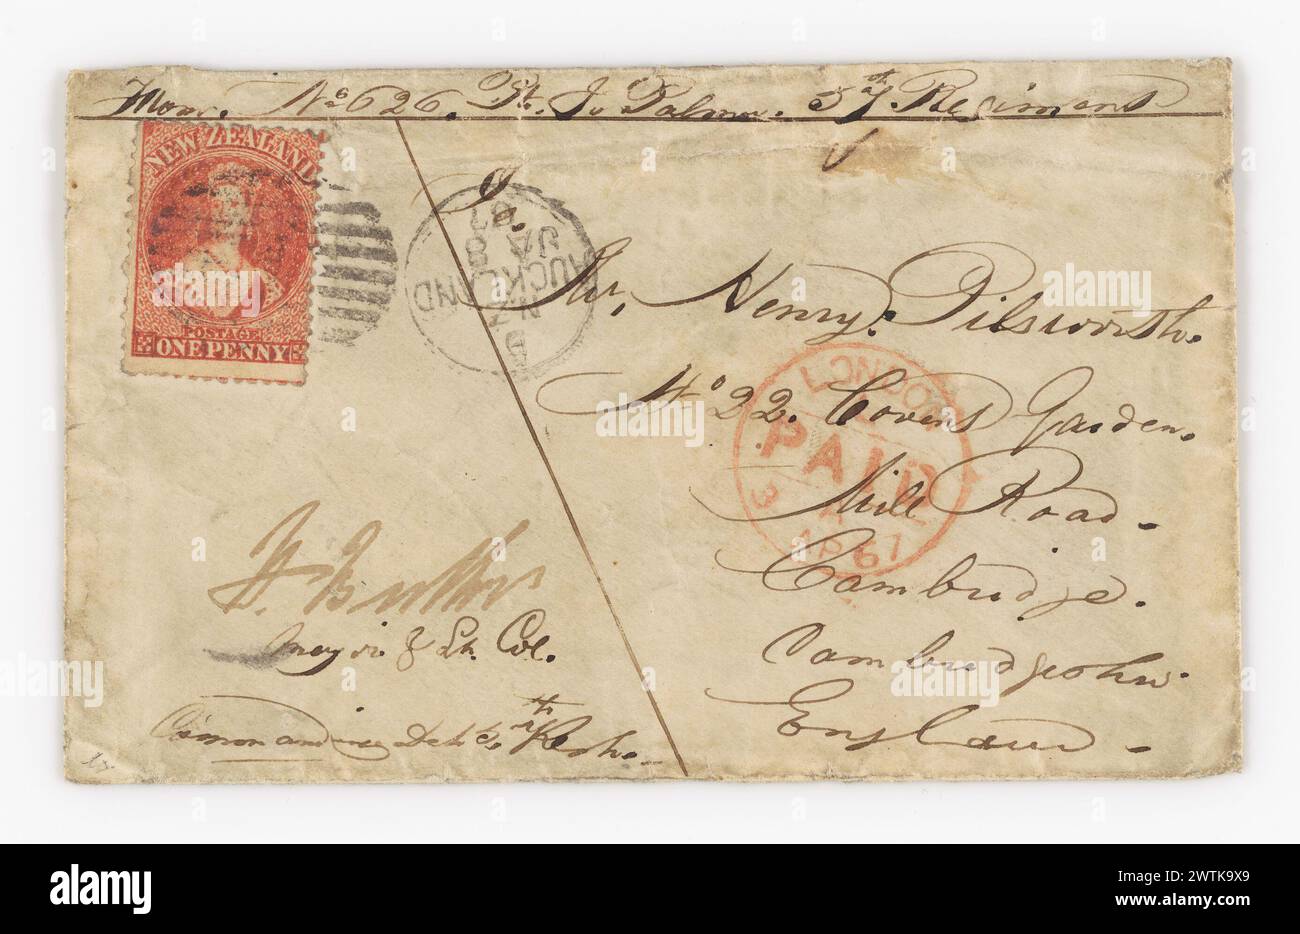 From. No 626. Pt. Jo Palmer. 57th Regiment
NEW ZEALAND
POSTAGE
ONE PENNY
AUCKLAND
N Z
JA
8
67
To.
Mr. Henry. Pilsworth.
No 22. Covent Garden.
LONDON
PAID
3
AP 67
Mill Road.
Cambridge.
Cambridgeshire.
England.
H. Butler
Major & Lt. Col.
Commanding Det. 57th Regt.
a
alamy
Image ID: 2WTK9X9
www.alamy.com